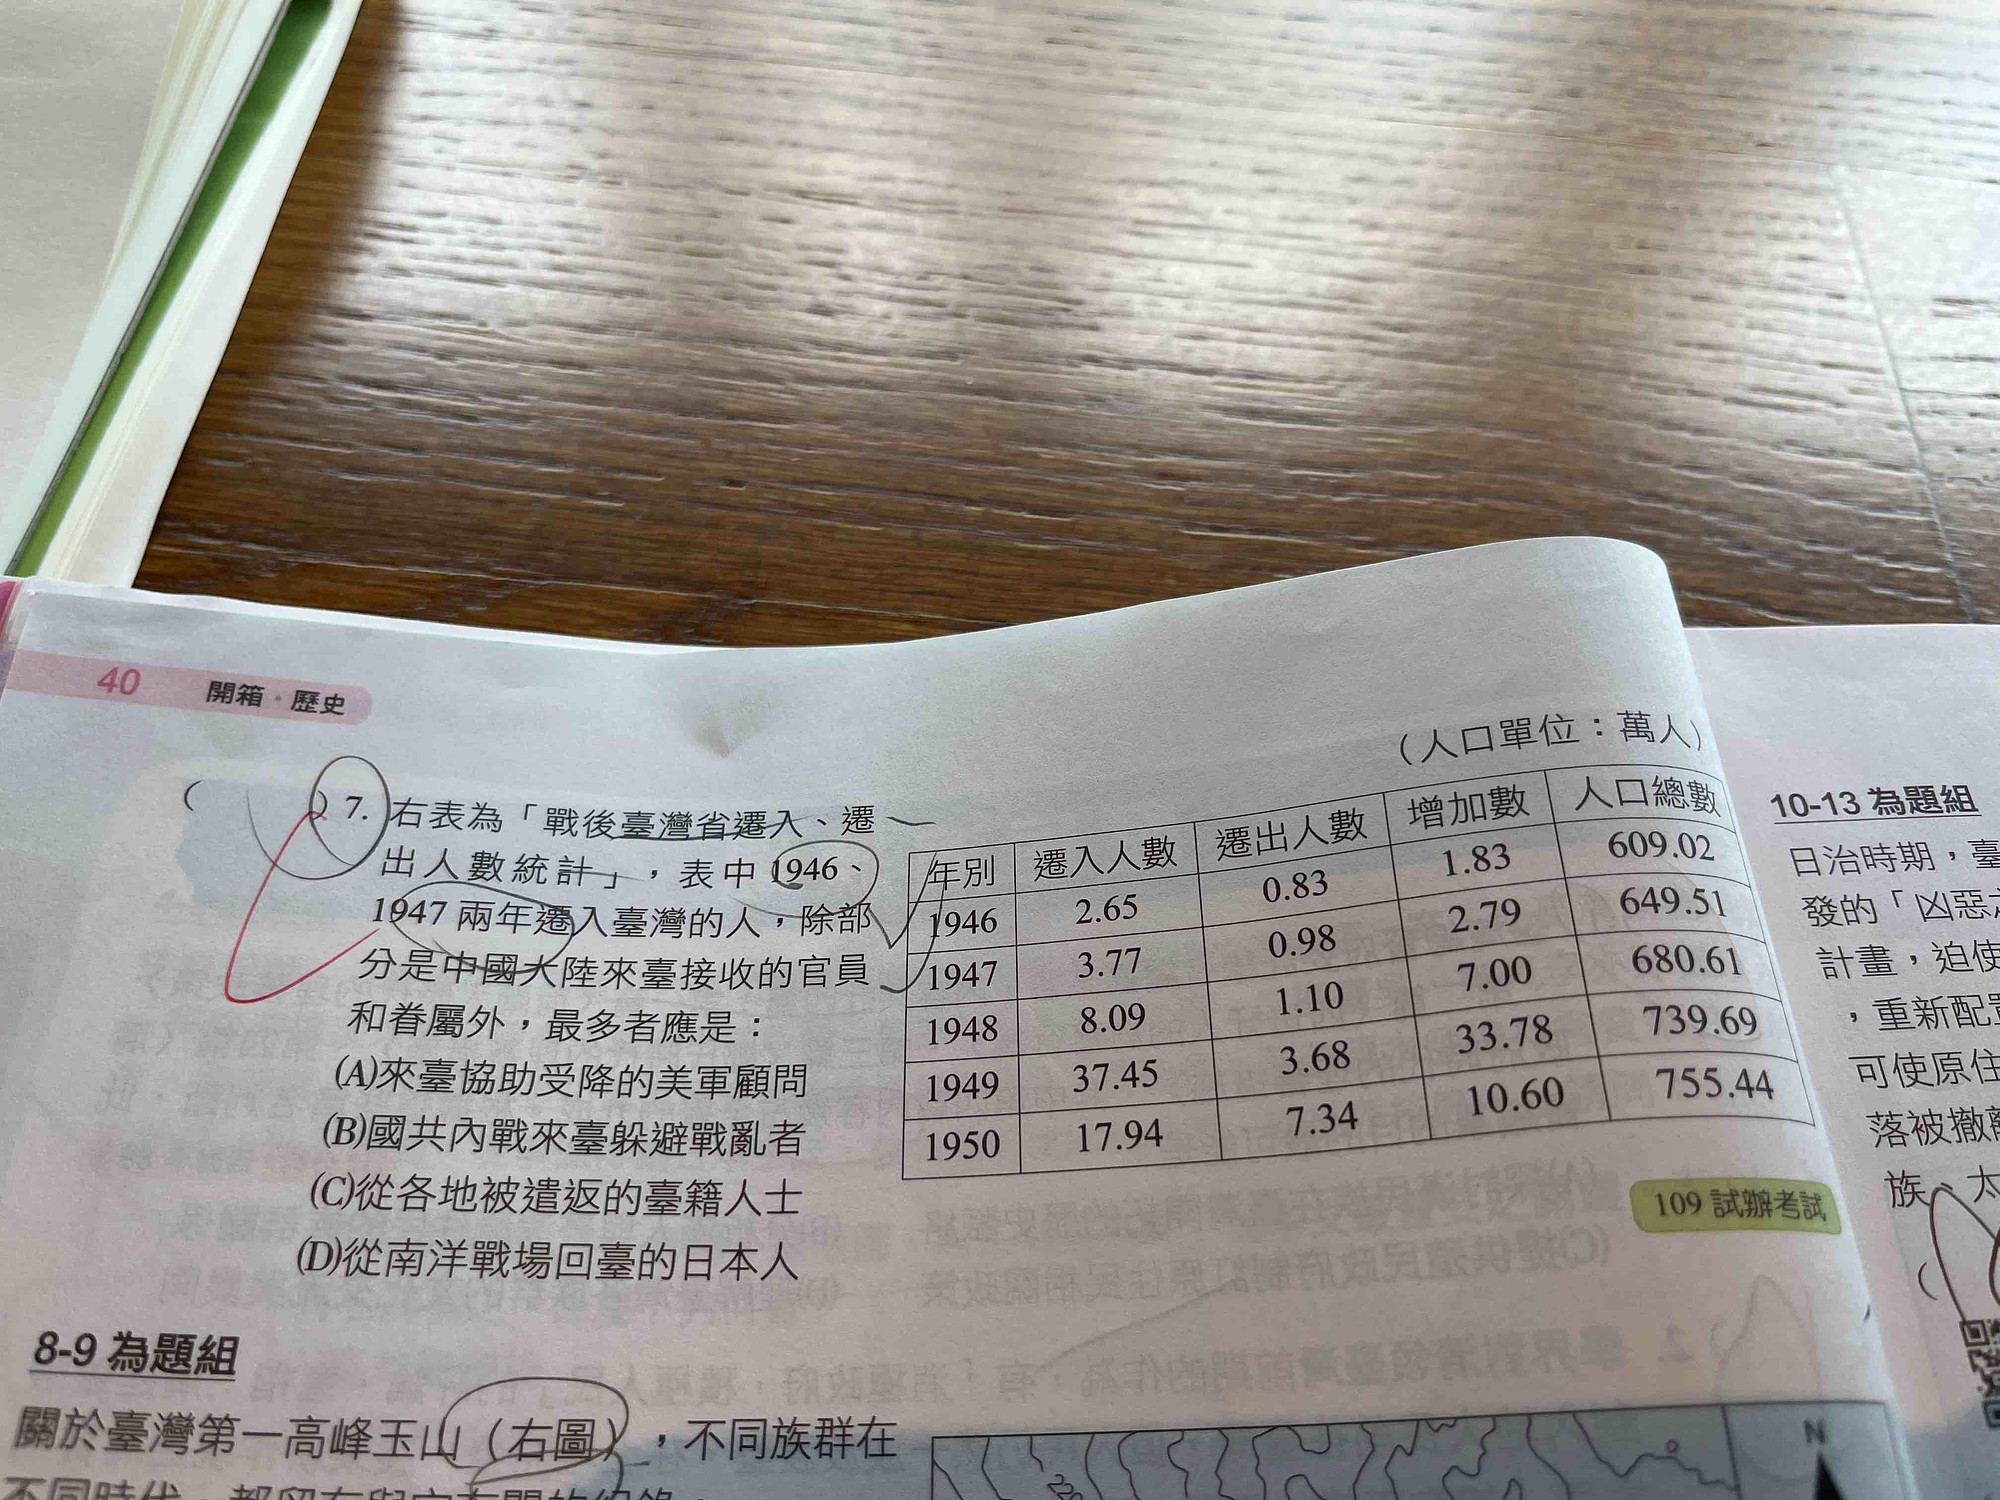 40 開箱・歷史
( ) 7. 右表為「戰後臺灣省遷入、遷
出人數統計」，表中 1946、
1947 兩年遷入臺灣的人，除部
分是中國大陸來臺接收的官員
和眷屬外，最多者應是：
(A)來臺協助受降的美軍顧問
(B)國共內戰來臺躲避戰亂者
(C)從各地被遣返的臺籍人士
(D)從南洋戰場回臺的日本人
（人口單位：萬人）
年別 遷入人數 遷出人數 增加數 人口總數
1946 2.65 0.83 1.83 609.02
1947 3.77 0.98 2.79 649.51
1948 8.09 1.10 7.00 680.61
1949 37.45 3.68 33.78 739.69
1950 17.94 7.34 10.60 755.44
109 試辦考試
8-9 為題組
關於臺灣第一高峰玉山（右圖），不同族群在
不同時代，都留有與它有關的紀錄
N
10-13 為題組
日治時期，臺
發的「凶惡
計畫，迫使
，重新配置
可使原住
落被撤離
族、太
(